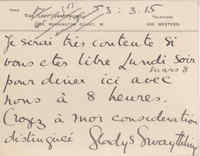 3.3.15
Je serai très contente si
vous etes libre Lundi soir
mars 8
pour diner ici avec
nous à 8 heures.
Croyez à mon consideration
distinguée
Gladys Swaythling